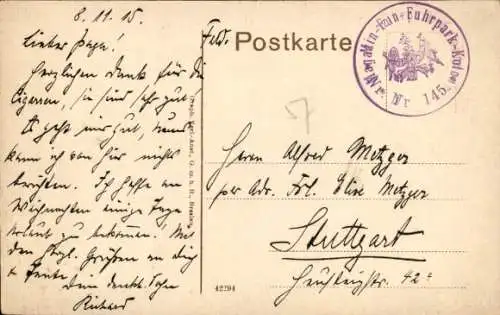 8. 11. 15.
Lieber Papa!
Herzlichen Dank für die
Cigarren, sie sind sehr gut.
Es geht mir gut, sonst
kann ich von hier nichts
berichten. Ich hoffe an
Weihnachten einige Tage
Urlaub zu bekommen. Mit
den herzl. Grüßen an Dich
+ Tante,
Dein dankb. Sohn
Richard
Feld-Postkarte
Fuhrpark-Kolonne
Nr. 145.
7
Herrn Alfred Metzger
per Adr. Frl. Elise Metzger
Stuttgart
42 c
42294